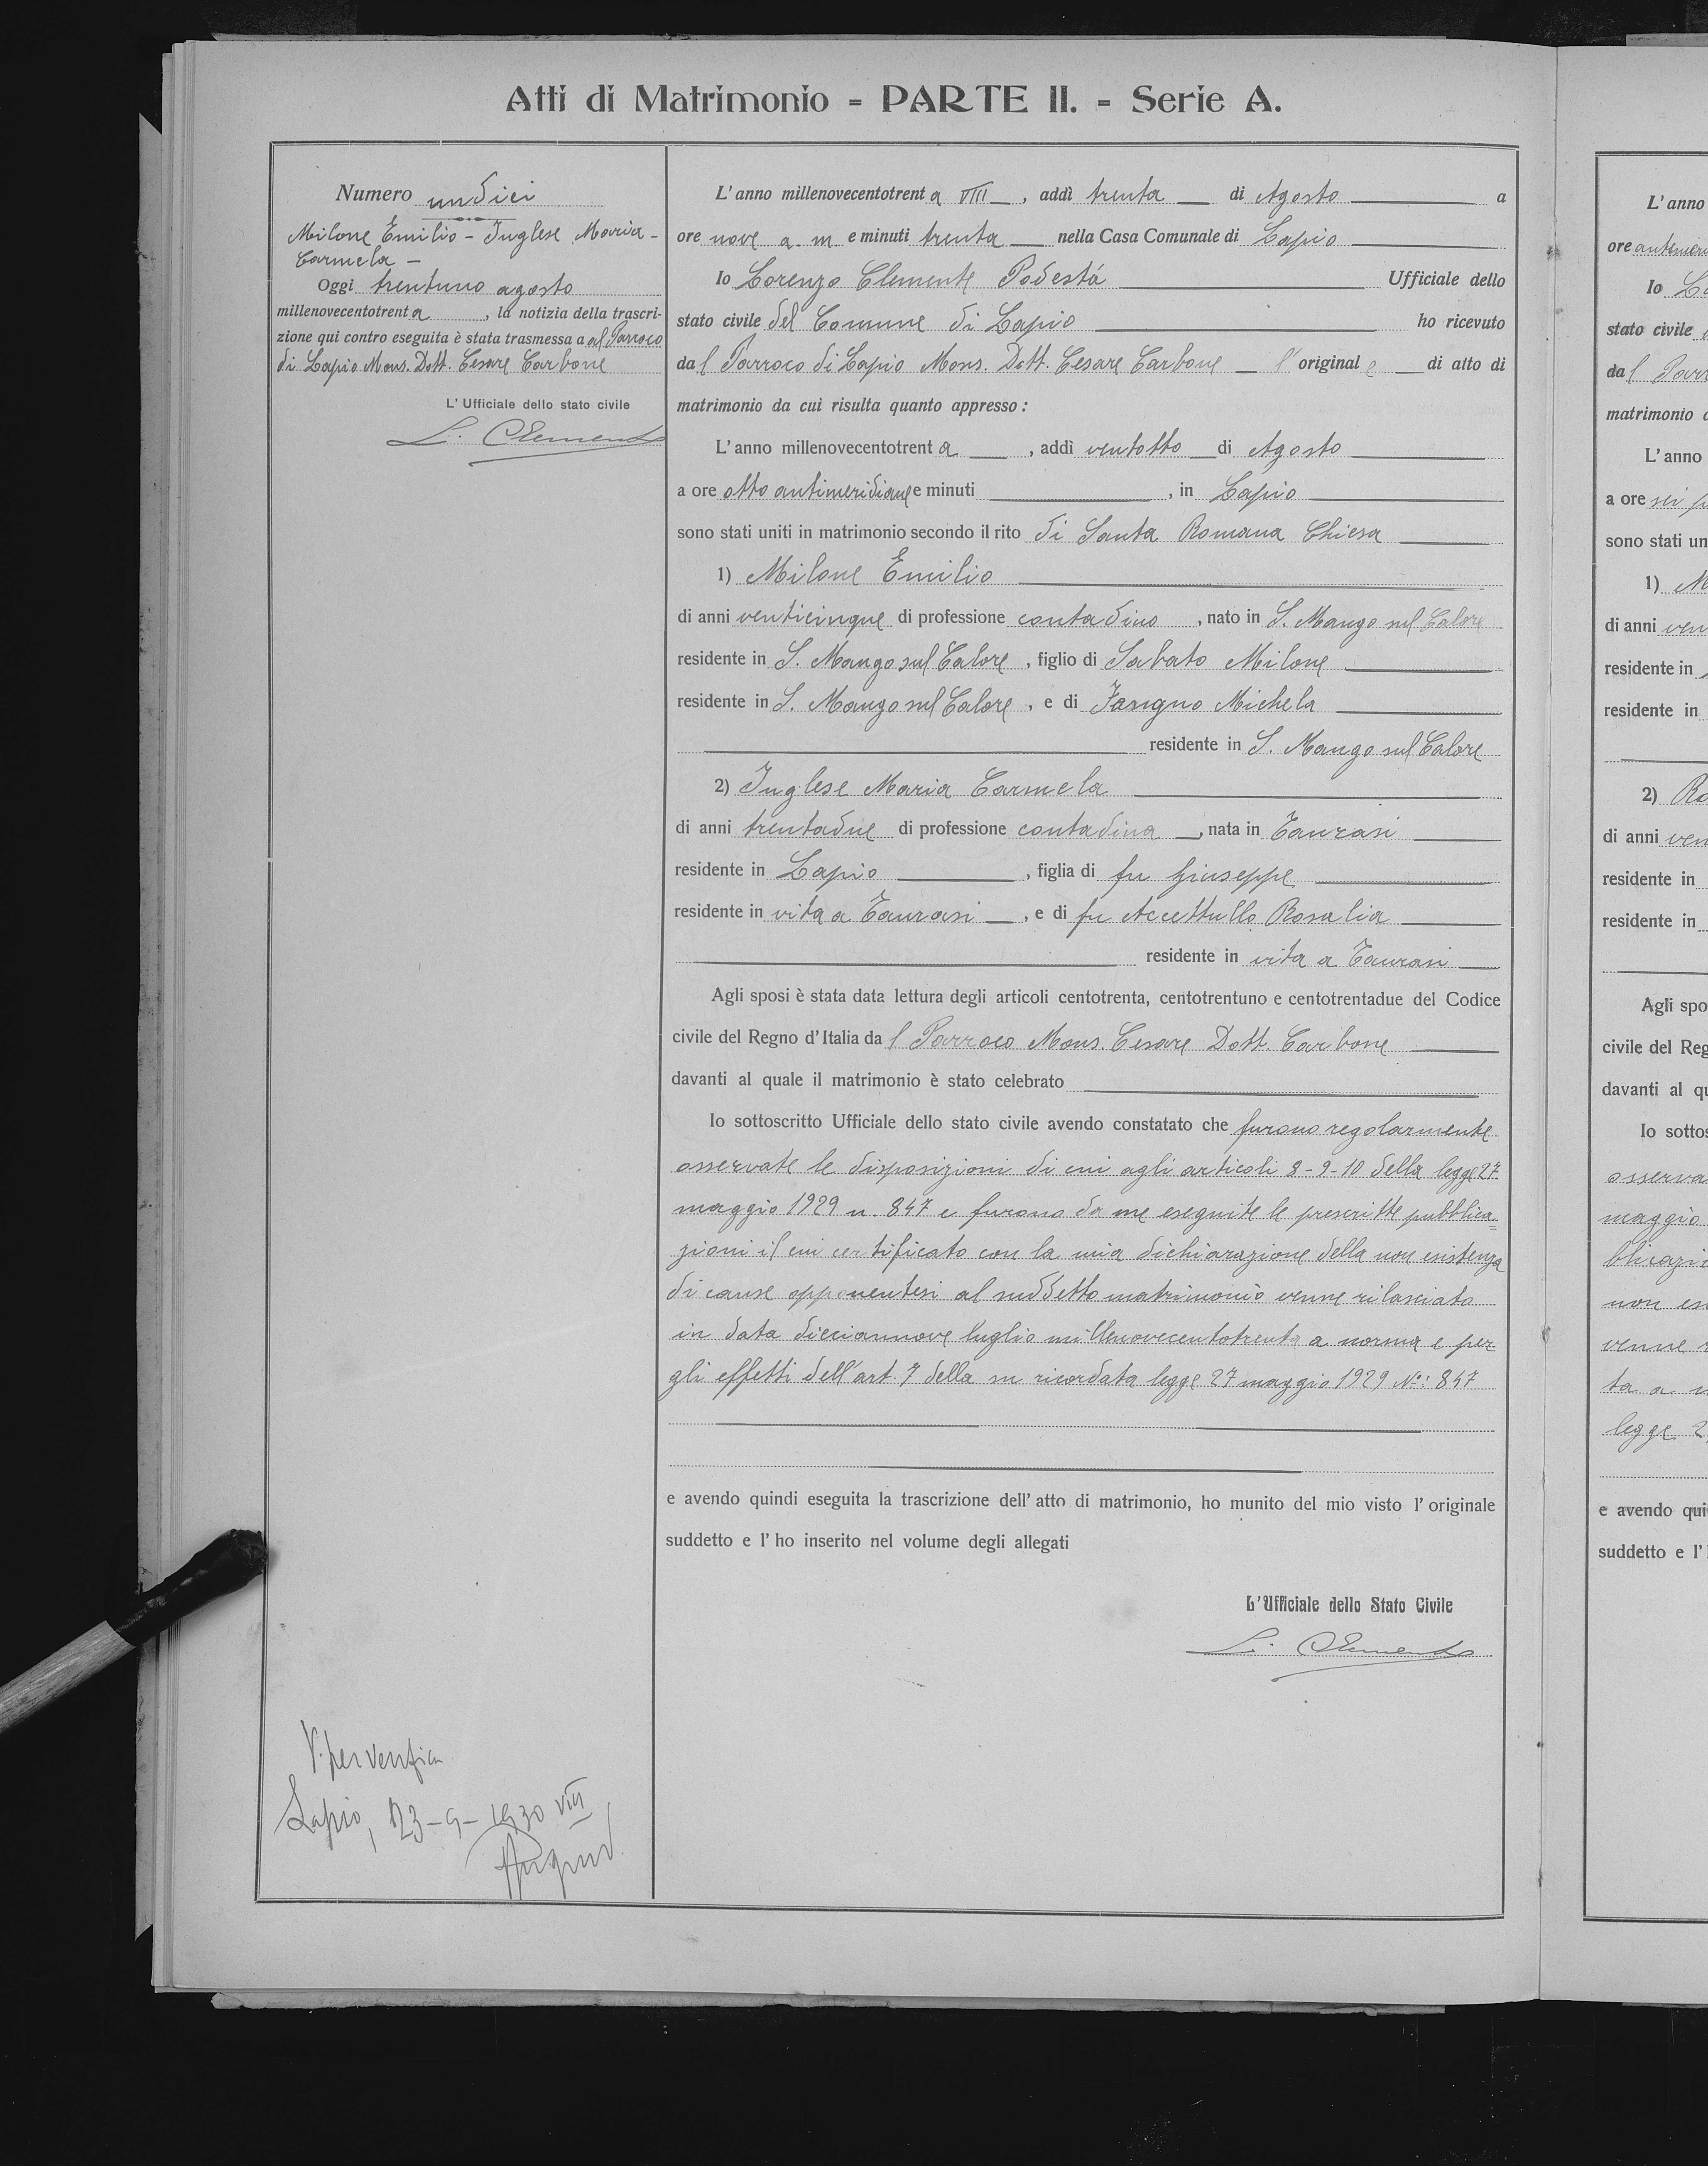 Atti di Matrimonio = PARTE II. = Serie A.
Numero undici
Milone Emilio - Inglese Maria -
Carmela -
Oggi trentuno agosto
millenovecentotrent a , la notizia della trascri-
zione qui contro eseguita è stata trasmessa a al Parroco
di Lapio Mons. Dott. Cesare Carbone
L' Ufficiale dello stato civile
L. Clemente
V. per verifica
Lapio, 23-9-1930 VIII
L' anno millenovecentotrent a VIII , addì trenta di Agosto a
ore nove a. m e minuti trenta nella Casa Comunale di Lapio
Io Lorenzo Clemente Podestá Ufficiale dello
stato civile del Comune di Lapio ho ricevuto
da l Parroco di Lapio Mons. Dott. Cesare Carbone l' original e di atto di
matrimonio da cui risulta quanto appresso :
L' anno millenovecentotrent a , addì ventotto di Agosto
a ore otto antimeridiane e minuti , in Lapio
sono stati uniti in matrimonio secondo il rito di Santa Romana Chiesa
1) Milone Emilio
di anni venticinque di professione contadino , nato in S. Mango sul Calore
residente in S. Mango sul Calore , figlio di Sabato Milone
residente in S. Mango sul Calore , e di Michela
residente in S. Mango sul Calore
2) Inglese Maria Carmela
di anni trentadue di professione contadina , nata in Taurasi
residente in Lapio , figlia di fu Giuseppe
residente in vita a Taurasi , e di fu Accettullo Rosalia
residente in vita a Taurasi
Agli sposi è stata data lettura degli articoli centotrenta, centotrentuno e centotrentadue del Codice
civile del Regno d' Italia da l Parroco Mons. Cesare Dott. Carbone
davanti al quale il matrimonio è stato celebrato
Io sottoscritto Ufficiale dello stato civile avendo constatato che furono regolarmente
osservate le disposizioni di cui agli articoli 8-9-10 della legge 27
maggio 1929 n. 847 e furono da me eseguite le prescritte pubblica=
zioni il cui certificato con la mia dichiarazione della non esistenza
di cause opponentesi al suddetto matrimonio venne rilasciato
in data diciannove luglio millenovecentotrenta a norma e per
gli effetti dell'art. 7 della su ricordata legge 27 maggio 1929 N.: 847
e avendo quindi eseguita la trascrizione dell' atto di matrimonio, ho munito del mio visto l' originale
suddetto e l' ho inserito nel volume degli allegati
L'Ufficiale dello Stato Civile
L. Clemente
L' anno
ore
Io
stato civile
da l
matrimonio
L' anno
a ore sei
sono stati
1)
di anni
residente in
residente in
2)
di anni
residente in
residente in
Agli
civile del
davanti al
Io
maggio
non
venne
ta a
legge
e avendo
suddetto e l'